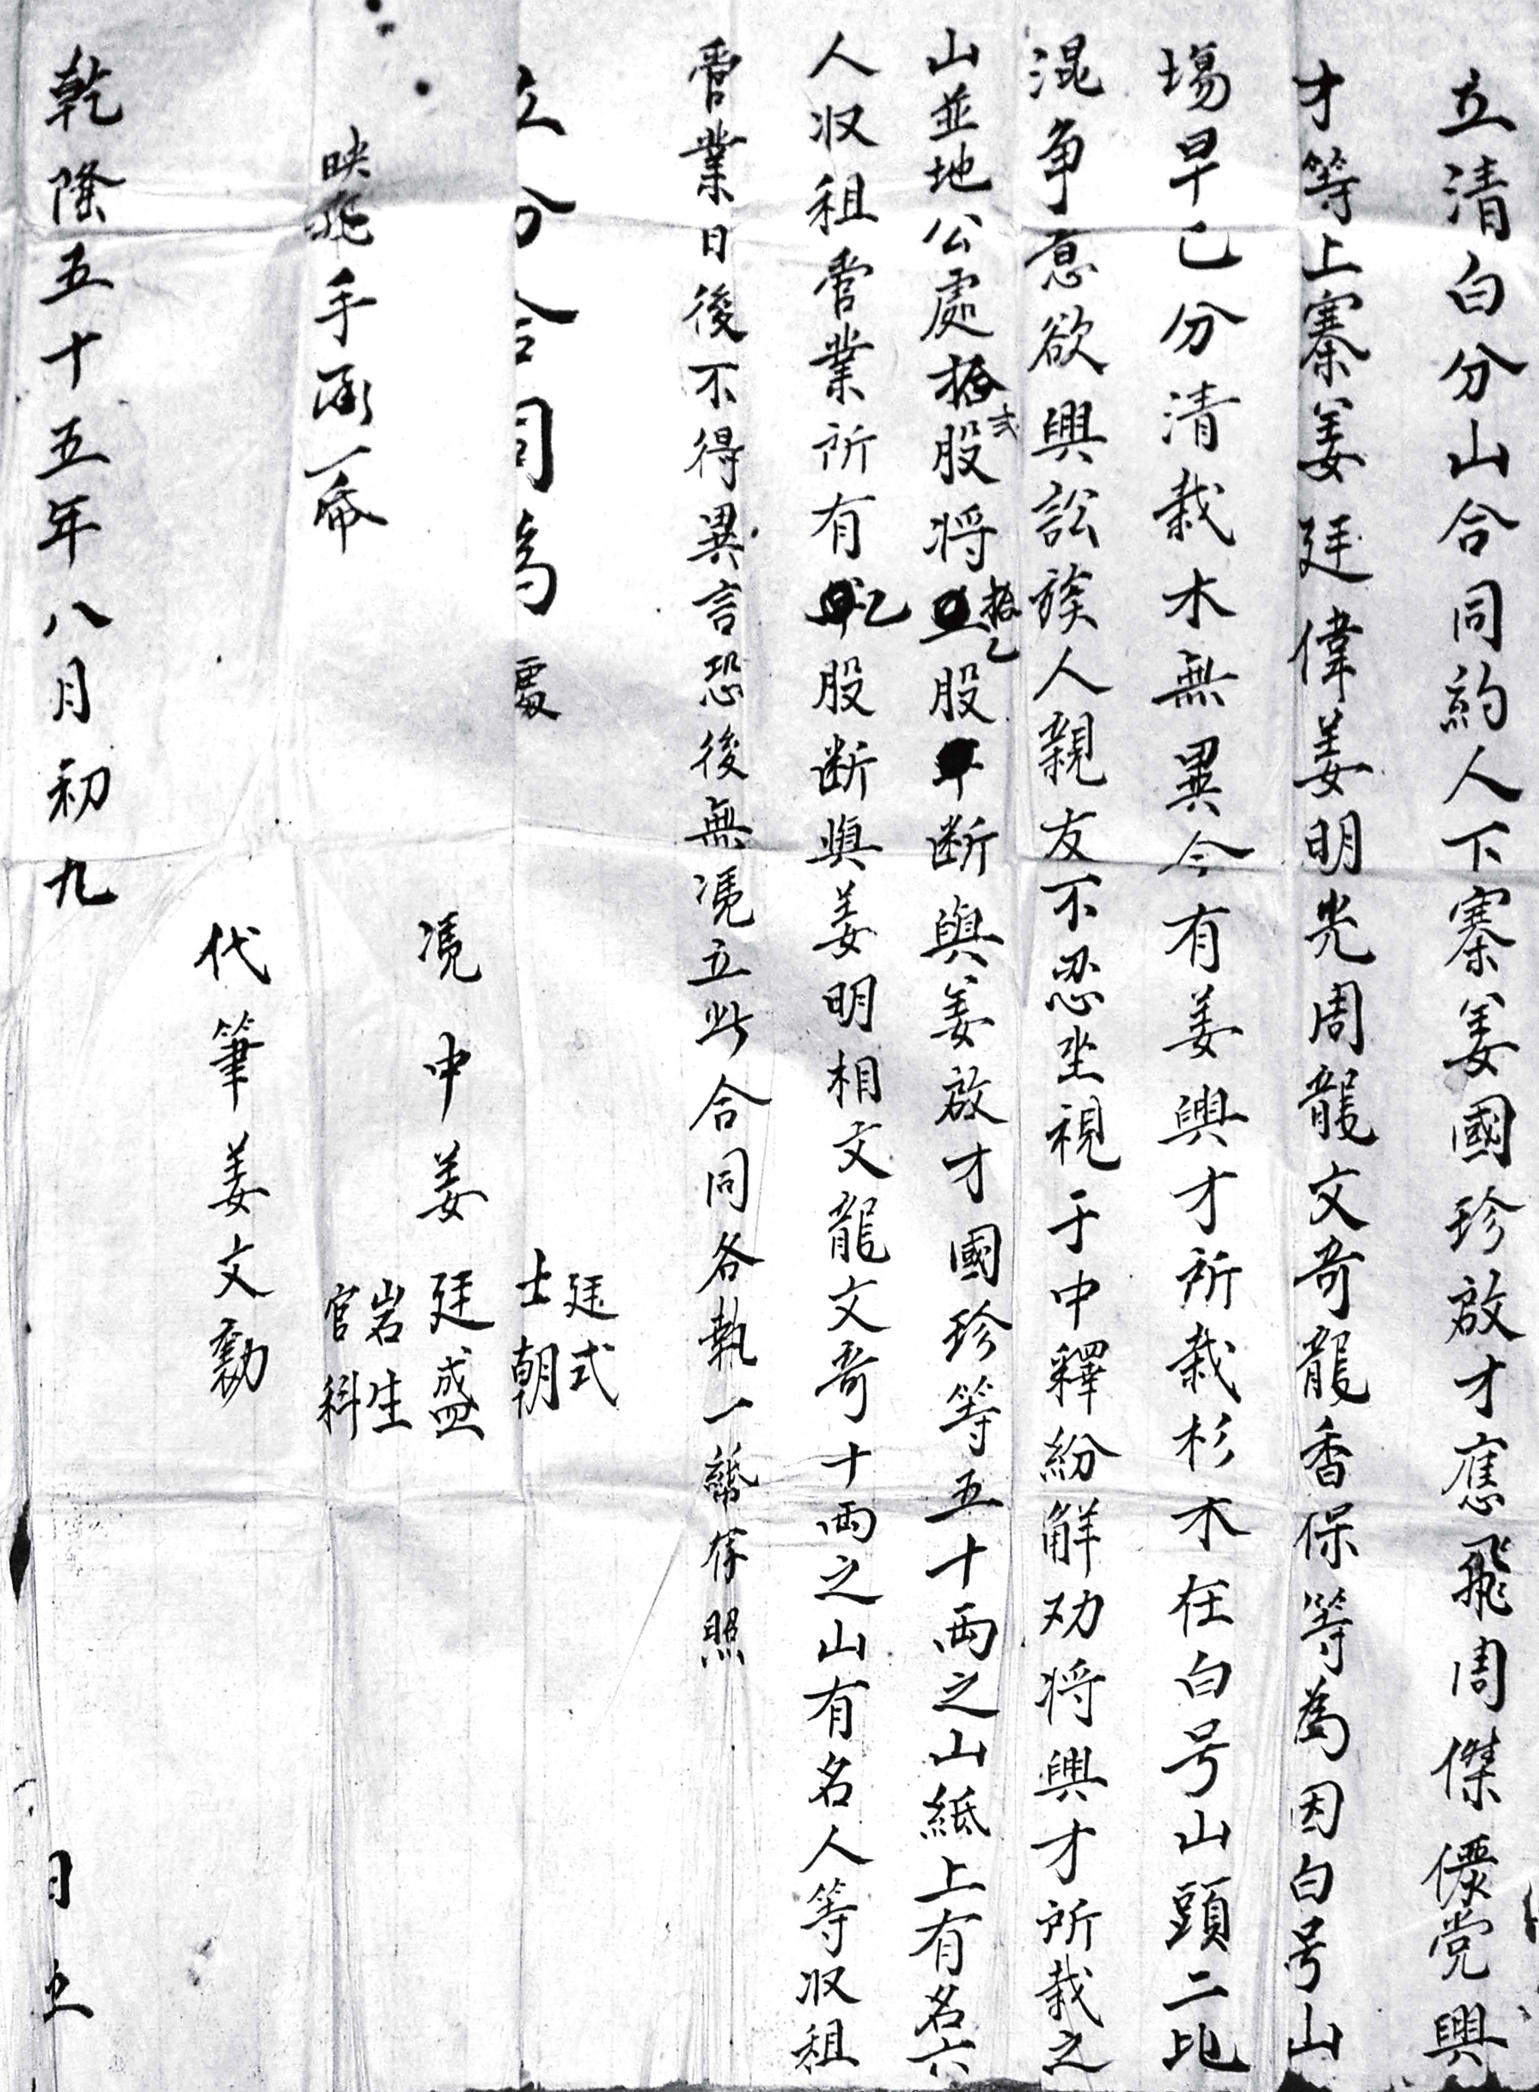 立清白分山合同約人下寨姜國珍啟才應飛周傑儍党興
才等上寨姜廷偉姜明光周龍文奇龍香保等為因白号山
塲早已分清栽木無異今有姜興才所栽杉木在白号山頭二比
混争意欲興訟族人親友不忍坐視于中釋紛解劝将興才所栽之
山並地公處拾弍股将拾乙股断與姜啟才國珍等五十両之山紙上有名六
人収租管業所有乙股断與姜明相文龍文奇十両之山有名人等収租
管業日後不得異言恐後無凴立此合同各執一紙存照
立分合同為處
廷式
士朝
凴中姜廷盛
岩生
官科
映飛手承一帋
代筆姜文勷
乾隆五十五年八月初九日立